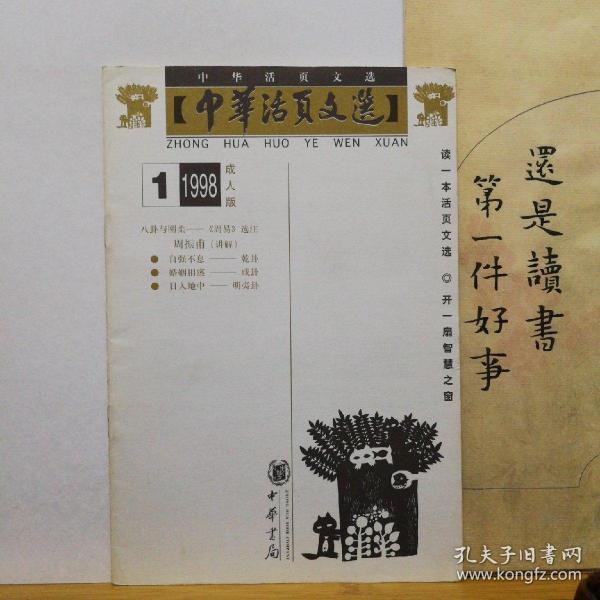 中华活页文选
【中華活頁文選】
ZHONG HUA HUO YE WEN XUAN
1 1998 成人版
八卦与刚柔——《周易》选注
周振甫（讲解）
● 自强不息——乾卦
● 婚姻相感——咸卦
● 日入地中——明夷卦
读一本活页文选 ◎ 开一扇智慧之窗
中華書局
ZHONG HUA BOOK COMPANY
還是讀書
第一件好事
孔夫子旧书网
www.kongfz.com